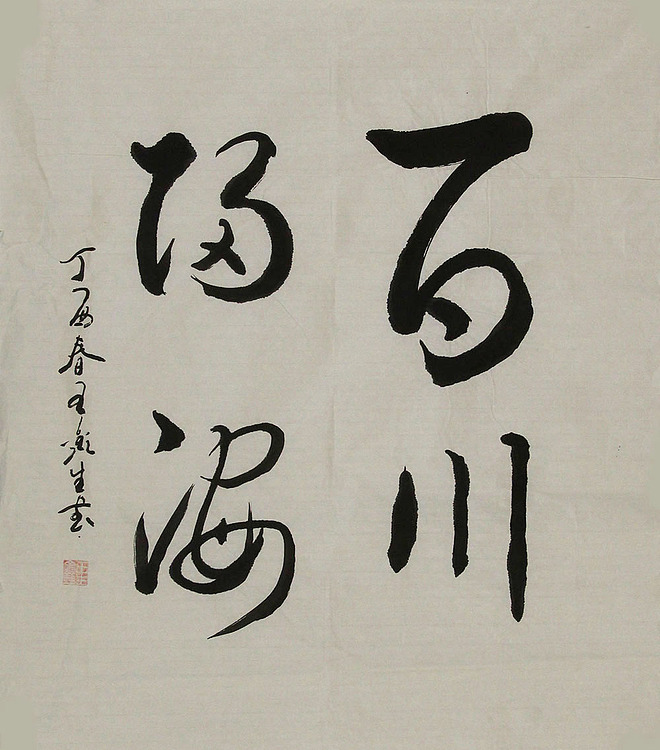 百川
归海
丁酉春王彦生书